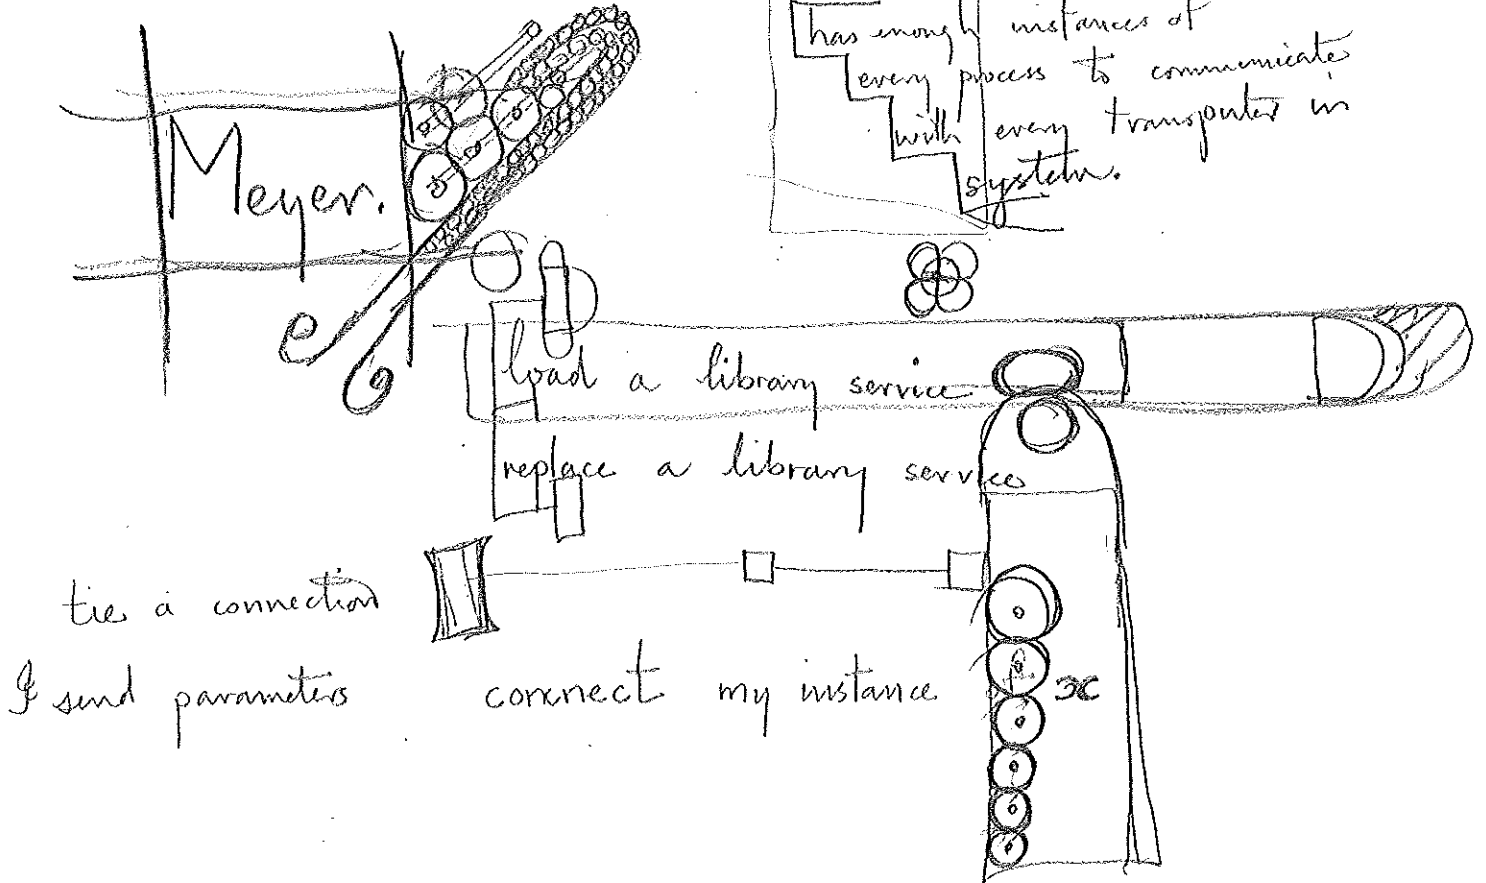 has enough instances of
every process to communicate
with every transputer in
system.
Meyer.
load a library service
replace a library service
tie a connection
I send parameters connect my instance
x